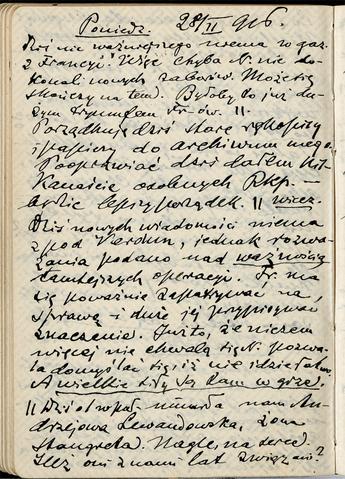 Poniedz. 28/II 916.
Dziś nic ważniejszego niema w gaz.
z Francji. Więc chyba N. nie do-
konali nowych zaborów. Może się
skończy na tem. Byłoby to już du-
żym tryumfem Fr-ów. ||
Porządkuję dziś stare rękopisy
i papiery do archiwum mego.
Pooprawiać dziś dałem kil-
kanaście osobnych Rkp. —
będzie lepszy porządek. || wiecz.
Dziś nowych wiadomości niema
z pod Verdun, jednak rozwa-
żania podano nad ważnością
tamtejszych operacji. Fr. ma
się poważnie zapatrywać na
sprawę i duże jej przypisywać
znaczenie. Już to, że niczem
więcej nie chwalą się N. pozwa-
la domyślać się, iż nie idzie łatwo.
A wielkie siły są tam w grze.
|| Dziś o wpół umarła nam An-
drzejowa Lewandowska, żona
stangreta. Nagle, na serce.
Ileż oni z nami lat związani?